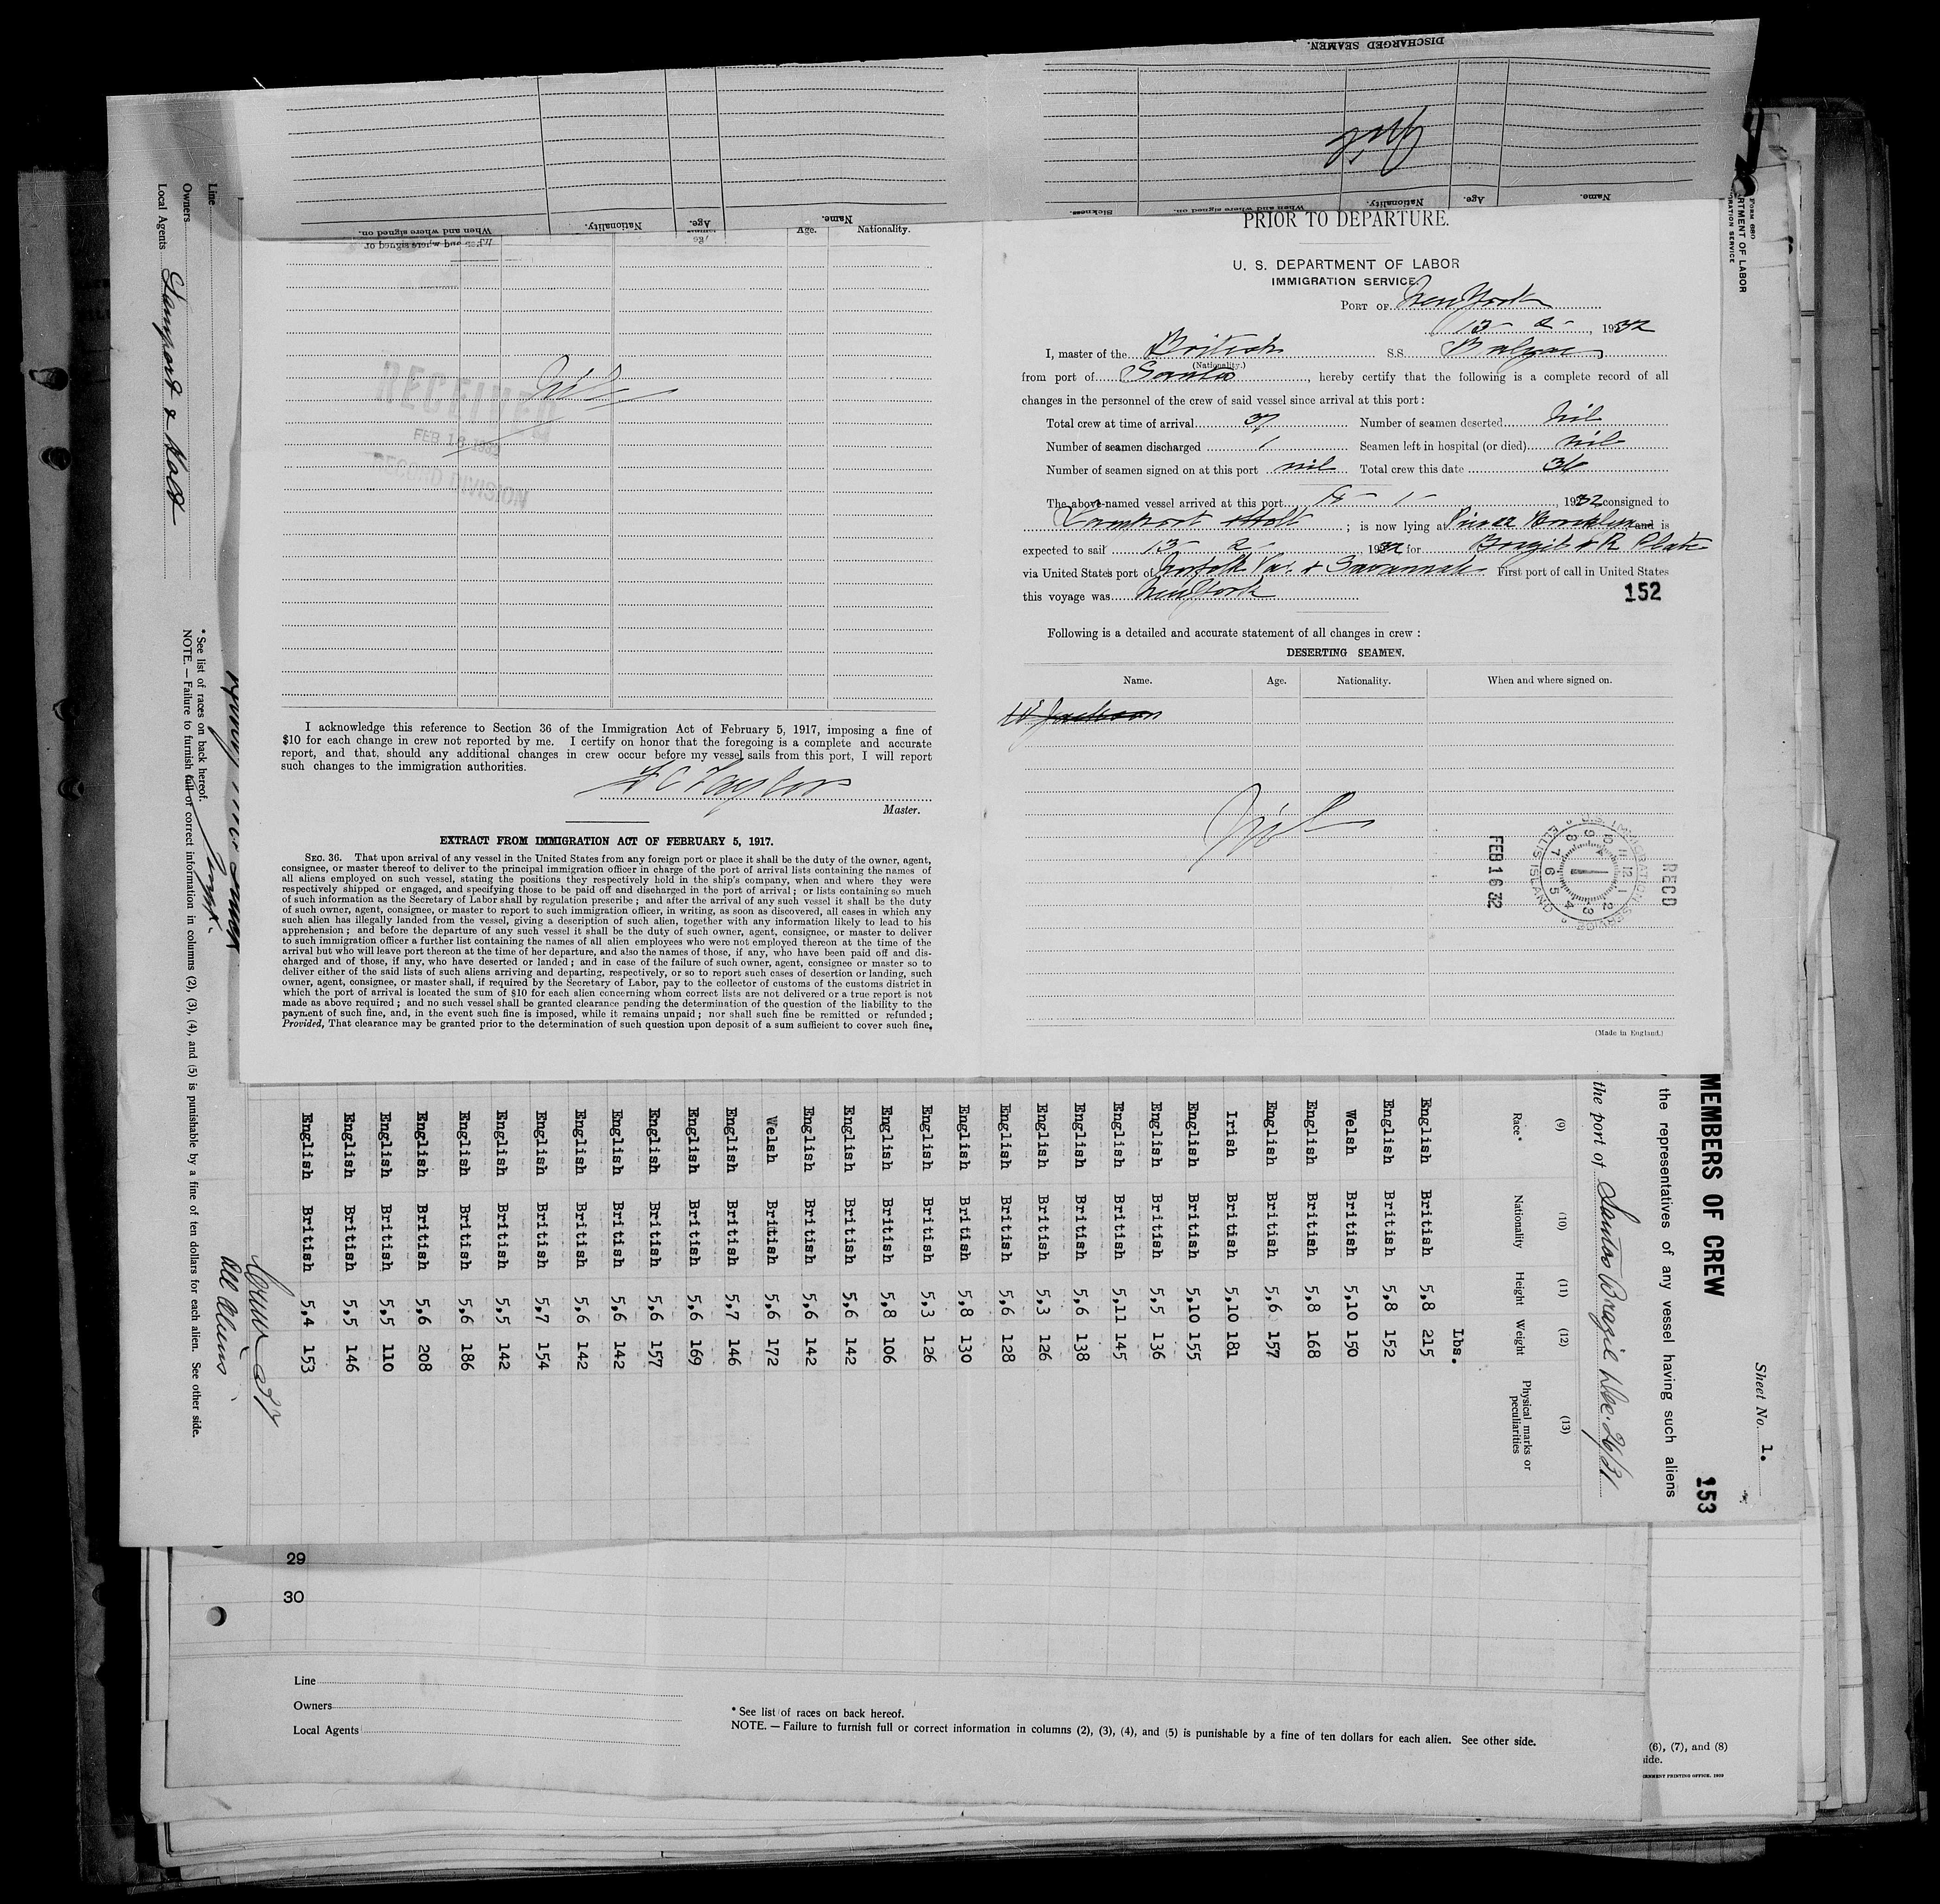 DISCHARGED SEAMEN.
Name.
Age.
Nationality.
When and where signed on.
Sickness.
Name.
Age.
Nationality.
When and where signed on.
Age.
Nationality.
Nil
RECEIVED
FEB 16 1932
RECORD DIVISION
I acknowledge this reference to Section 36 of the Immigration Act of February 5, 1917, imposing a fine of
$10 for each change in crew not reported by me. I certify on honor that the foregoing is a complete and accurate
report, and that should any additional changes in crew occur before my vessel sails from this port, I will report
such changes to the immigration authorities.
Taylor
Master.
EXTRACT FROM IMMIGRATION ACT OF FEBRUARY 5, 1917.
SEC. 36. That upon arrival of any vessel in the United States from any foreign port or place it shall be the duty of the owner, agent,
consignee, or master thereof to deliver to the principal immigration officer in charge of the port of arrival lists containing the names of
all aliens employed on such vessel, stating the positions they respectively hold in the ship's company, when and where they were
respectively shipped or engaged, and specifying those to be paid off and discharged in the port of arrival; or lists containing so much
of such information as the Secretary of Labor shall by regulation prescribe; and after the arrival of any such vessel it shall be the duty
of such owner, agent, consignee, or master to report to such immigration officer, in writing, as soon as discovered, all cases in which any
such alien has illegally landed from the vessel, giving a description of such alien, together with any information likely to lead to his
apprehension; and before the departure of any such vessel it shall be the duty of such owner, agent, consignee, or master to deliver
to such immigration officer a further list containing the names of all alien employees who were not employed thereon at the time of the
arrival but who will leave port thereon at the time of her departure, and also the names of those, if any, who have been paid off and dis-
charged and of those, if any, who have deserted or landed; and in case of the failure of such owner, agent, consignee or master so to
deliver either of the said lists of such aliens arriving and departing, respectively, or so to report such cases of desertion or landing, such
owner, agent, consignee, or master shall, if required by the Secretary of Labor, pay to the collector of customs of the customs district in
which the port of arrival is located the sum of $10 for each alien concerning whom correct lists are not delivered or a true report is not
made as above required; and no such vessel shall be granted clearance pending the determination of the question of the liability to the
payment of such fine, and, in the event such fine is imposed, while it remains unpaid; nor shall such fine be remitted or refunded;
Provided, That clearance may be granted prior to the determination of such question upon deposit of a sum sufficient to cover such fine,
PRIOR TO DEPARTURE.
U. S. DEPARTMENT OF LABOR
IMMIGRATION SERVICE.
PORT OF New York
13 - 2 - , 1932
I, master of the British S.S. Balzac
(Nationality.)
from port of Santos, hereby certify that the following is a complete record of all
changes in the personnel of the crew of said vessel since arrival at this port:
Total crew at time of arrival 37 Number of seamen deserted nil
Number of seamen discharged 1 Seamen left in hospital (or died) nil
Number of seamen signed on at this port nil Total crew this date 36
The above-named vessel arrived at this port - 1 - 1932 consigned to
Lamport & Holt ; is now lying at Brooklyn and is
expected to sail 13 - 2 - 1932 for Brazil & R Plate
via United States port of Norfolk Va. & Savannah First port of call in United States
this voyage was New York
152
Following is a detailed and accurate statement of all changes in crew:
DESERTING SEAMEN.
Name. Age. Nationality. When and where signed on.
Jackson
Nil
REC'D
U.S. IMMIGRATION SERVICE
ELLIS ISLAND
FEB 16 32
(Made in England.)
FORM 680
RTMENT OF LABOR
RATION SERVICE
Sheet No. 1.
153
MEMBERS OF CREW
the representatives of any vessel having such aliens
the port of Santos Brazil Dec. 26/31
(9) (10) (11) (12) (13)
Race* Nationality Height Weight Physical marks or peculiarities
Lbs.
English British 5,8 215
English British 5,8 152
Welsh British 5,10 150
English British 5,8 168
English British 5,6 157
Irish British 5,10 181
English British 5,10 155
English British 5,5 136
English British 5,11 145
English British 5,6 138
English British 5,3 126
English British 5,6 128
English British 5,8 130
English British 5,3 126
English British 5,8 106
English British 5,6 142
English British 5,6 142
Welsh British 5,6 172
English British 5,7 146
English British 5,6 169
English British 5,6 157
English British 5,6 142
English British 5,6 142
English British 5,7 154
English British 5,5 142
English British 5,6 186
English British 5,6 208
English British 5,5 110
English British 5,5 146
English British 5,4 153
Line
Owners
Local Agents Lamport & Holt
* See list of races on back hereof.
NOTE. — Failure to furnish full or correct information in columns (2), (3), (4), and (5) is punishable by a fine of ten dollars for each alien. See other side.
29
30
Line
Owners
Local Agents
* See list of races on back hereof.
NOTE. — Failure to furnish full or correct information in columns (2), (3), (4), and (5) is punishable by a fine of ten dollars for each alien. See other side.
(6), (7), and (8)
ide.